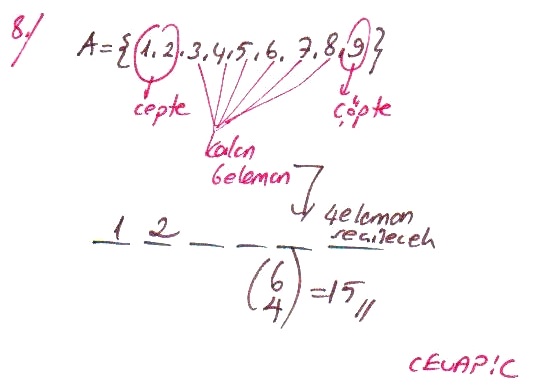 8./
A={1,2,3,4,5,6,7,8,9}
cepte
çöpte
kalan
6 eleman
4 eleman
seçilecek
1 2 _ _ _ _
(6
4) = 15//
CEVAP: C